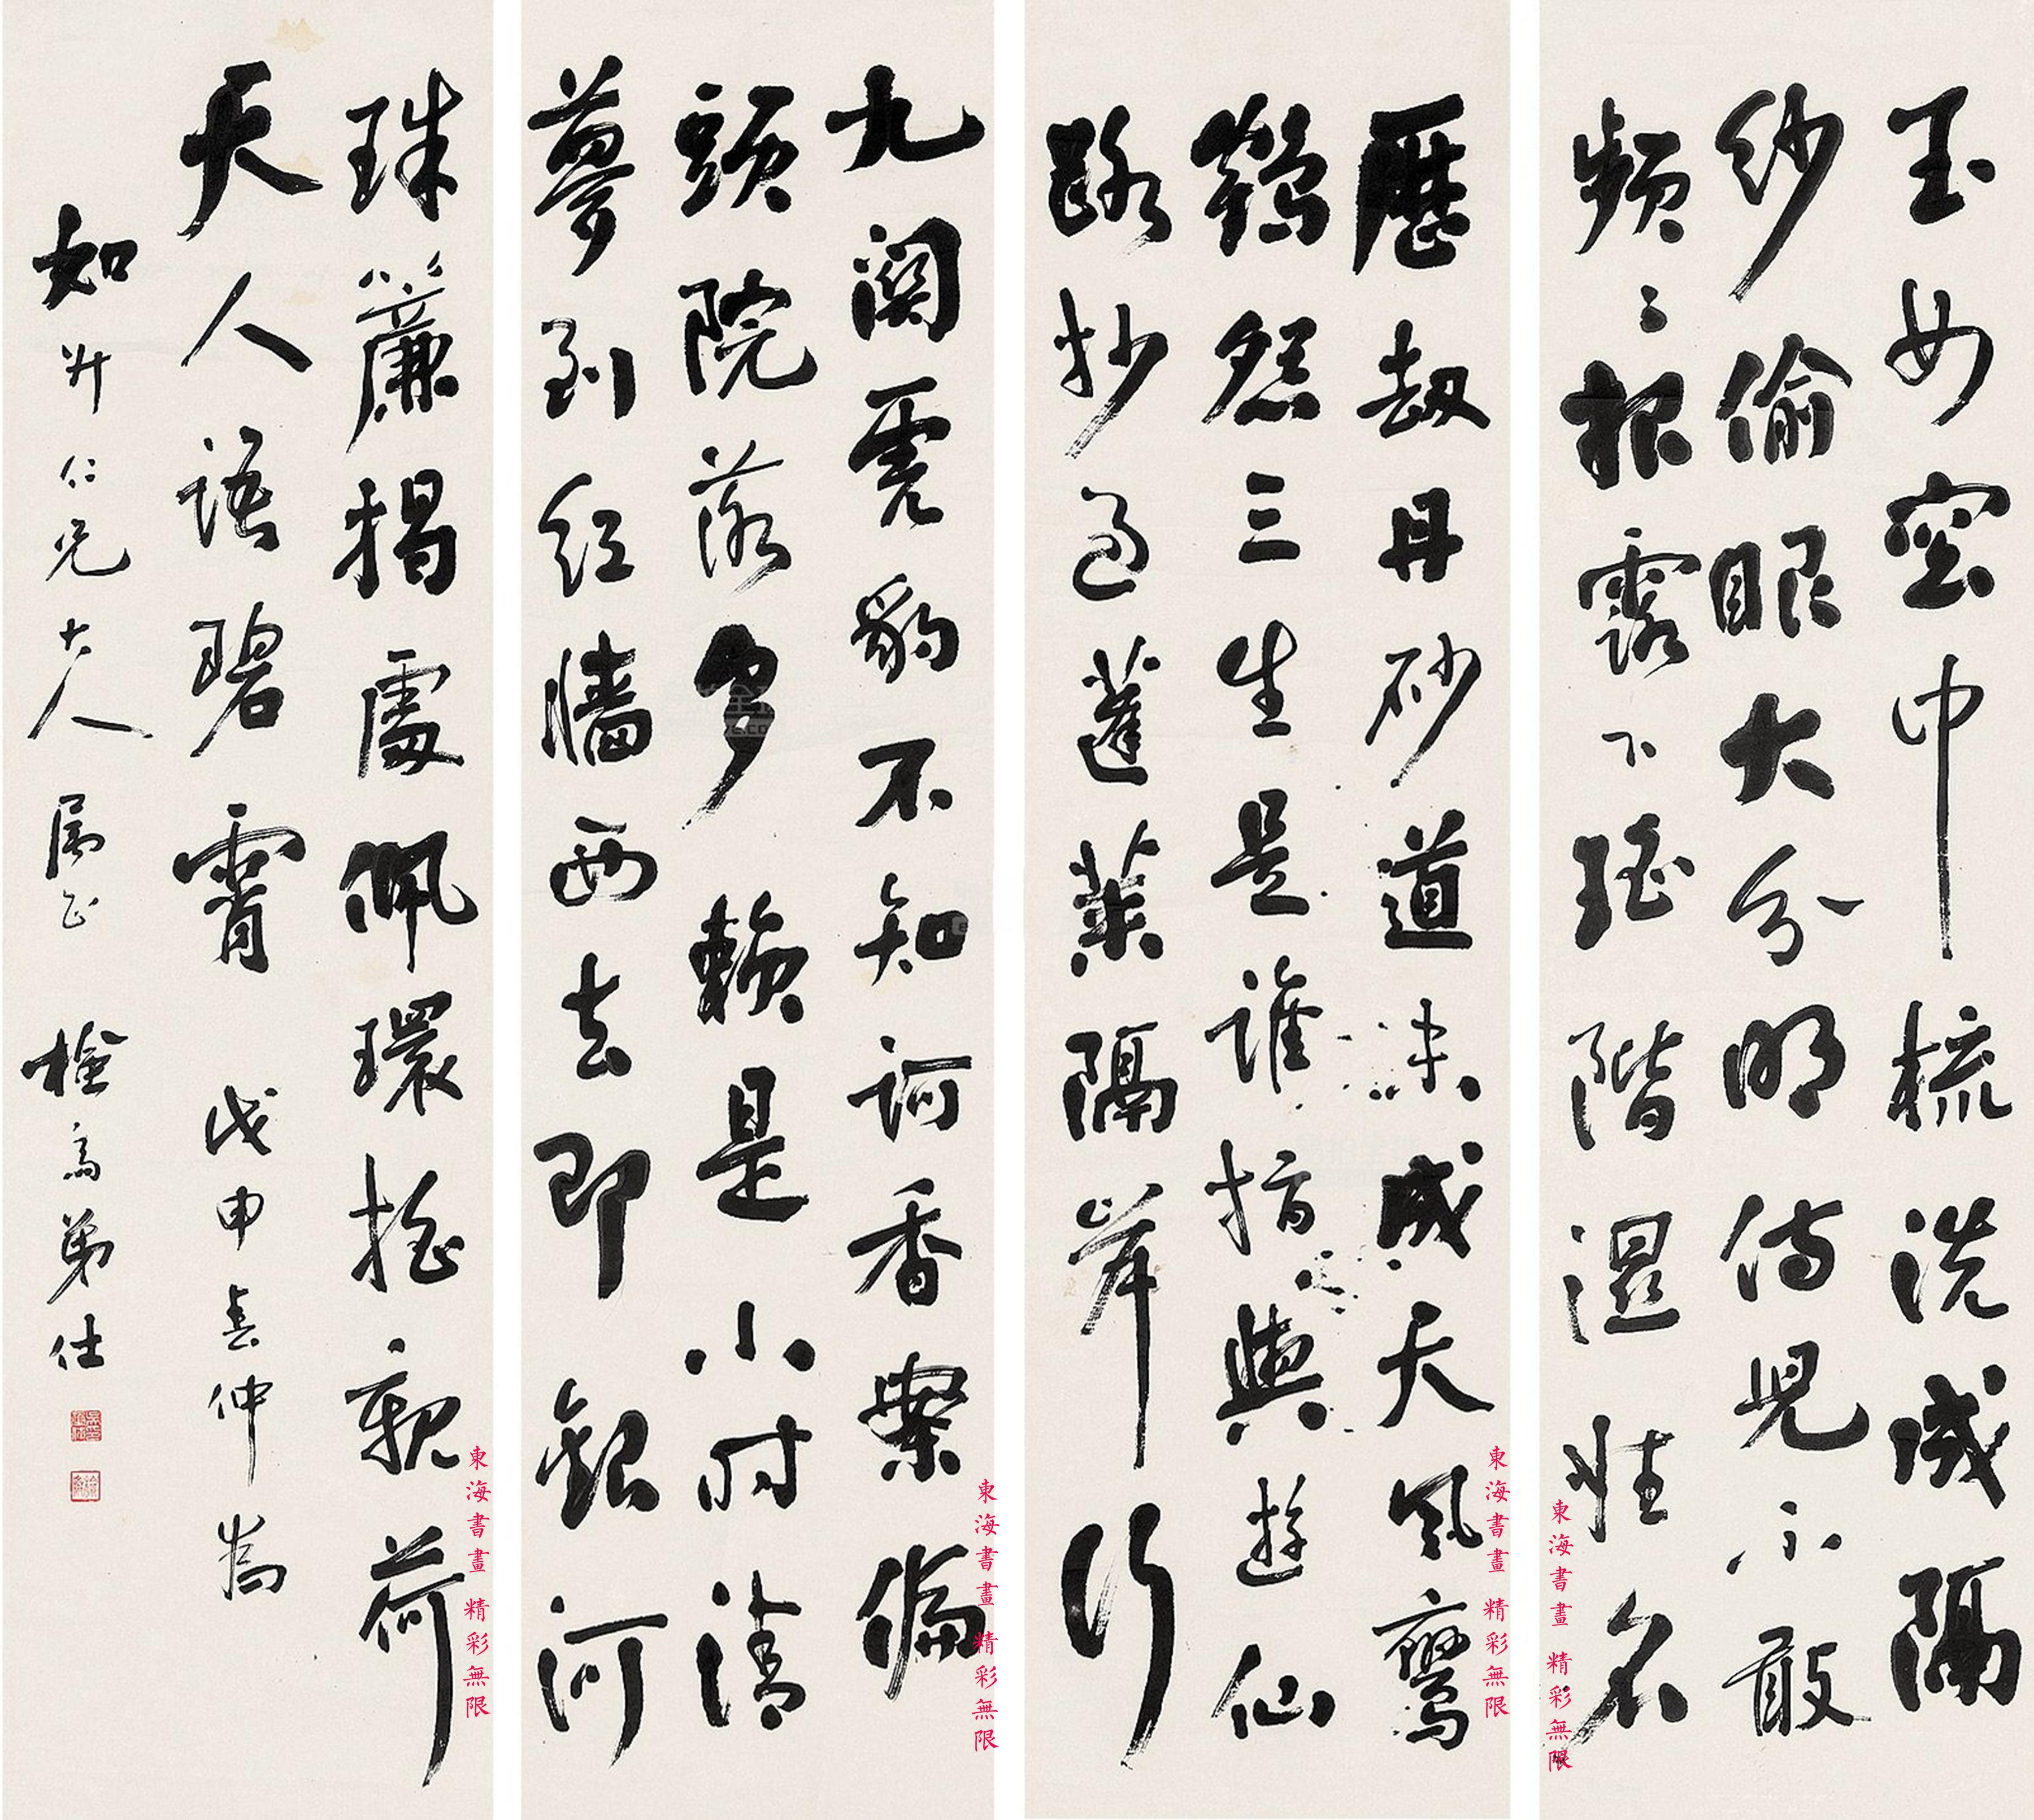 玉女窗中梳洗成隔
紗偷眼大分明侍兒不敢
頻々報露下瑤階濕姓名
歷劫丹砂道未成天風鸞
鶴怨三生是誰指與遊仙
路抄過蓬萊隔岸行
九關虎豹不知訶香案偏
頭院落多賴是小時清
夢到紅牆西去即銀河
珠簾揭處佩環搖親荷
天人語碧霄 戊申春仲為
如升仁兄大人屬正 檢齋弟仕
東海書畫 精彩無限
東海書畫 精彩無限
東海書畫 精彩無限
東海書畫 精彩無限